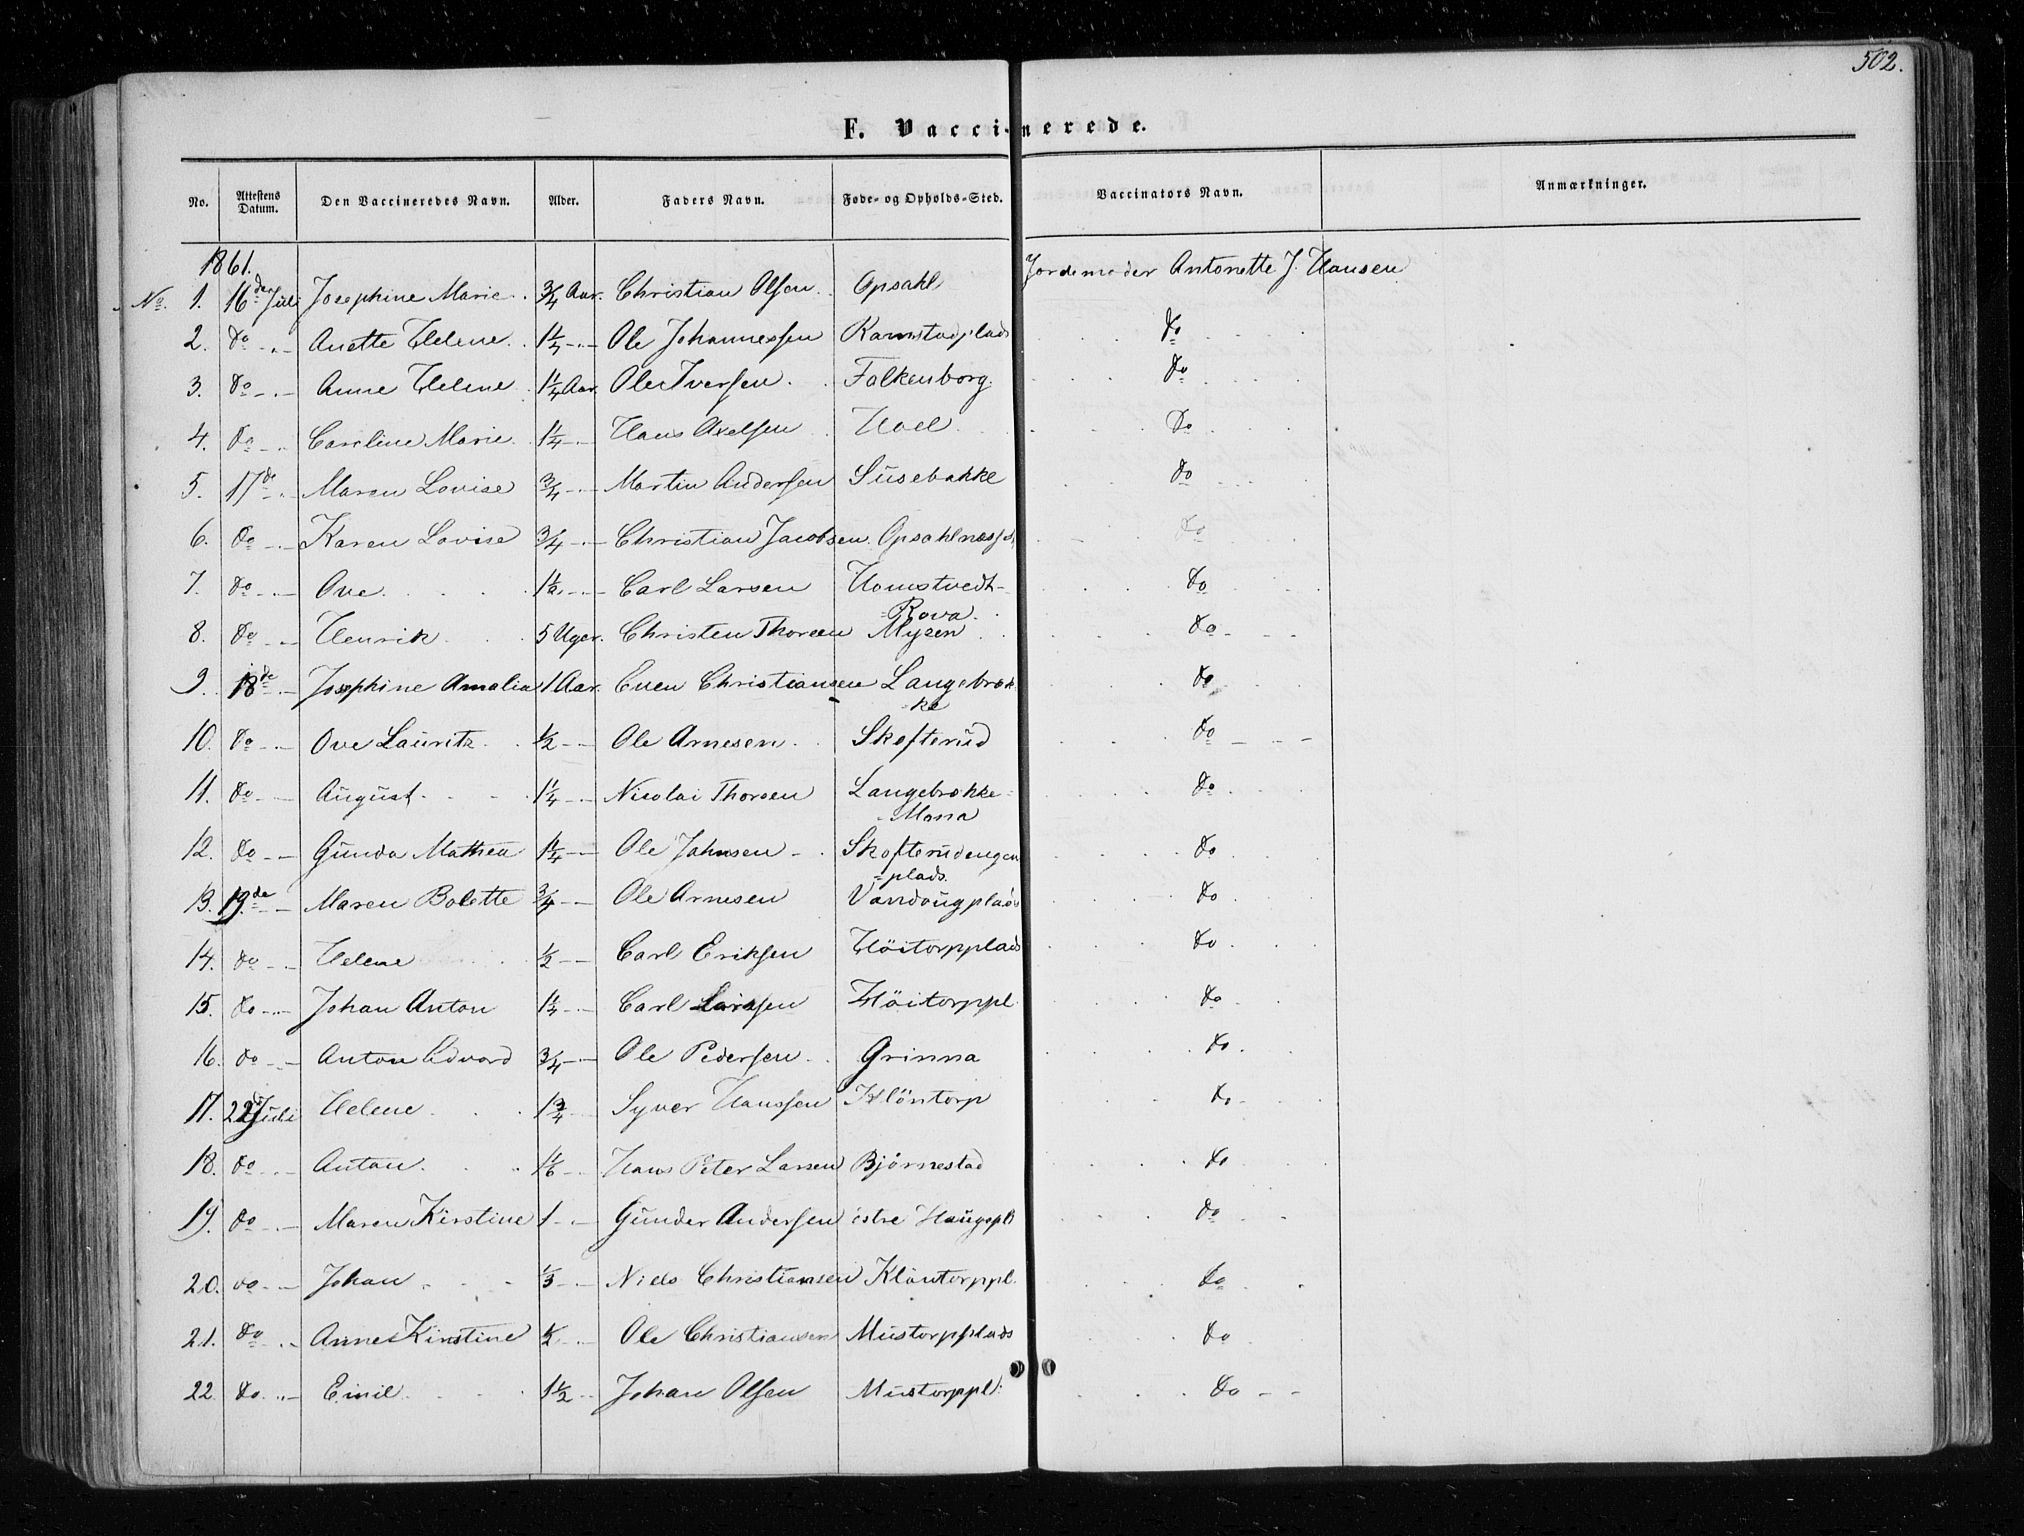 502.
F. Vaccinerede.
No. Attestens Datum. Den Vaccineredes Navn. Alder. Faders Navn. Føde- og Opholds-Sted. Vaccinators Navn. Anmærkninger.
1861. Jordemoder Antonette J. Hansen
No. 1. 16de Juli Josephine Marie 3/4 Aar. Christian Olsen Opsahl
2. do Anette Helene 1 1/4 Ole Johannessen Ramstadplads do
3. do Anne Helene 1 1/4 Aar. Ole Iversen Falkenborg. do
4. do Caroline Marie 1 1/4 Hans Axelsen Hoel do
5. 17de Maren Lovise 3/4 Martin Andersen Susebakke do
6. do Karen Lovise 3/4 Christian Jacobsen Opsahlnæss do
7. do Ove 1 1/2 Carl Larsen Homstvedt- do
Rova
8. do Henrik 5 Uger. Christen Thoresen Mysen do
9. 18de Josephine Amalia 1 Aar. Even Christiansen Langebræk- do
ke
10. do Ove Lauritz 1/2 Ole Arnesen Skofterud do
11. do August 1 1/4 Nicolai Thorsen Langebrække- do
Mona
12. do Gunda Mathea 1 1/4 Ole Johnsen Skofterudengen do
plads.
13. 19de Maren Bolette 3/4 Ole Arnesen do
14. do Helene 1/2 Carl Eriksen Höitorpplads do
15. do Johan Anton 1 1/4 Carl Larsen Höitorppl do
16. do Anton Edvard 3/4 Ole Pedersen Grinna do
17. 22 Juli Helene 1 3/4 Syver Hanssen Klöntorp do
18. do Anton 1 1/6 Hans Peter Larsen Bjørnestad do
19. do Maren Kirstine 1 Gunder Andersen østre Haugspl do
20. do Johan 1/3 Niels Christiansen Klöntorppl. do
21. do Anne Kirstine 1/2 Ole Christiansen Mustorpplads do
22 do Emil 1 1/2 Johan Olsen Mustorppl. do